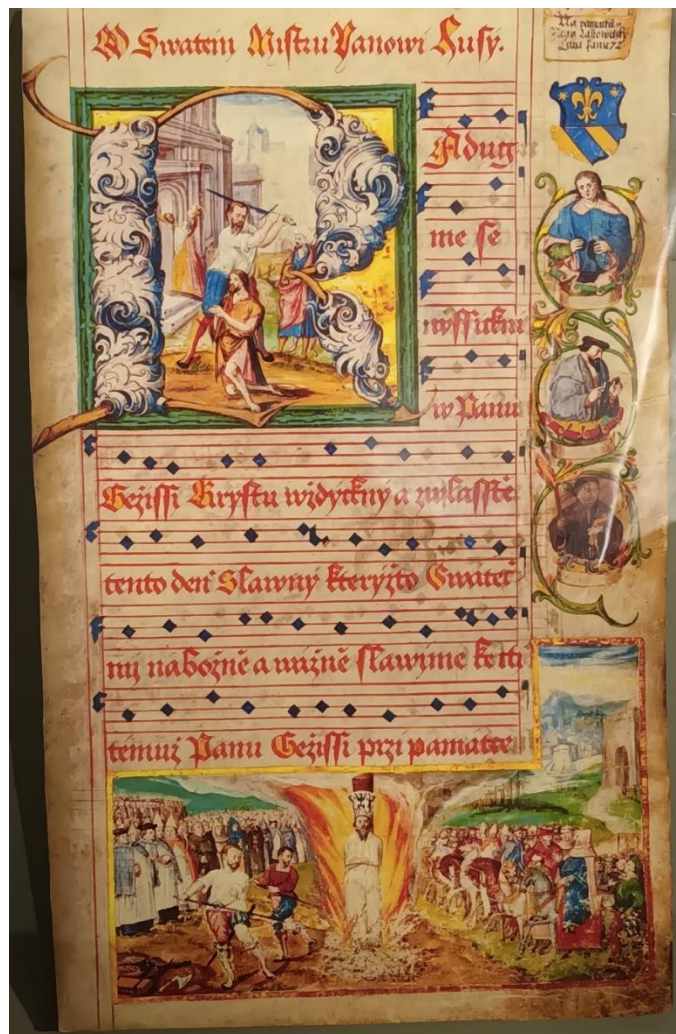 O Swatem Mistru Janowi Husy.
Na památku
Radug
me se
wssickni
w Pánu
Gezissi Krystu wzdyckny a zwlasstě
tento den Slawny kteryžto Swatě
my nabožně a wážně slawime ketti
temuž Panu Gezissi przi pamatce